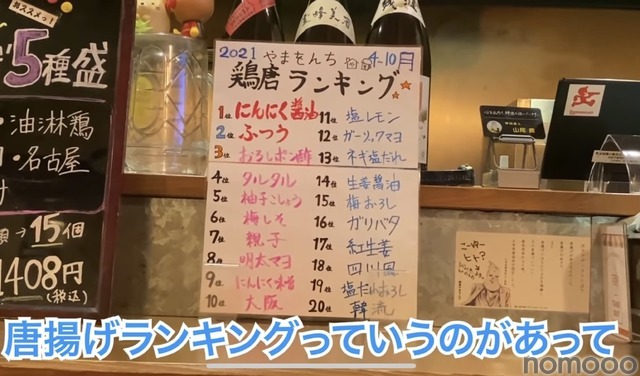 おススメっ!
5種盛
油淋鶏
名古屋
15個
1408円
(税込)
2021 やまをんち 4-10月
鶏唐ランキング
1位 にんにく醤油
2位 ふつう
3位 おろしポン酢
4位 タルタル
5位 柚子こしょう
6位 梅しそ
7位 親子
8位 明太マヨ
9位 にんにく味噌
10位 大阪
11位 塩レモン
12位 ガーリックマヨ
13位 ネギ塩だれ
14位 生姜醤油
15位 梅おろし
16位 ガリバタ
17位 紅生姜
18位 四川風
19位 塩だれおろし
20位 韓流
唐揚げランキングっていうのがあって
nomooo